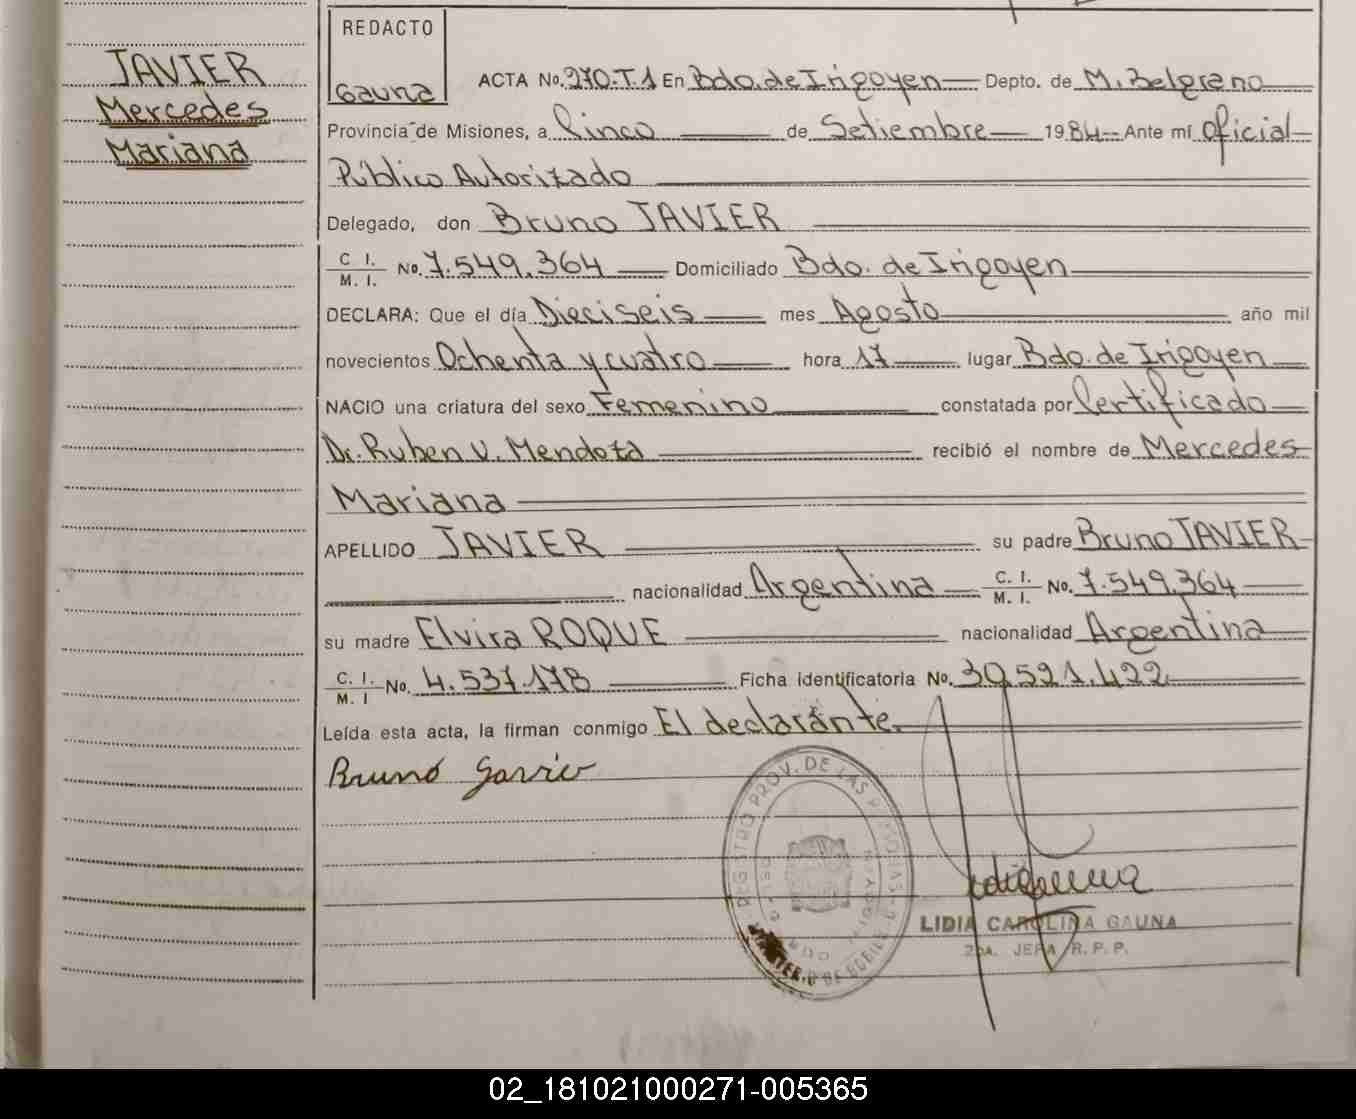 JAVIER
Mercedes
Mariana
REDACTO
Gauna
ACTA No. 270.T.1 En Bdo. de Irigoyen Depto. de M. Belgrano
Provincia de Misiones, a Cinco de Setiembre 1984 Ante mí Oficial
Público Autorizado
Delegado, don Bruno JAVIER
C. I.
M. I. No. 7.549.364 Domiciliado Bdo. de Irigoyen
DECLARA: Que el día Dieciseis mes Agosto año mil
novecientos Ochenta y cuatro hora 17 lugar Bdo. de Irigoyen
NACIO una criatura del sexo Femenino constatada por Certificado
Dr. Ruben V. Mendoza recibió el nombre de Mercedes
Mariana
APELLIDO JAVIER su padre Bruno JAVIER
nacionalidad Argentina C. I.
M. I. No. 7.549.364
su madre Elvira ROQUE nacionalidad Argentina
C. I.
M. I No. 4.537.178 Ficha identificatoria No. 30.521.422
Leída esta acta, la firman conmigo El declarante.
Bruno
REGISTRO PROV. DE LAS PERSONAS
LIDIA CAROLINA GAUNA
2DA. JEFA R. P. P.
02_181021000271-005365